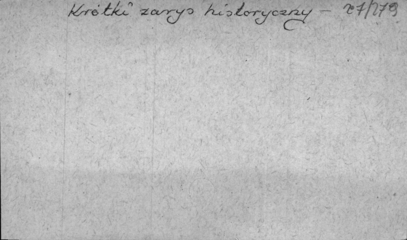 Krótki zarys historyczny – 27/179